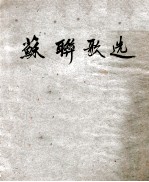 蘇聯歌选